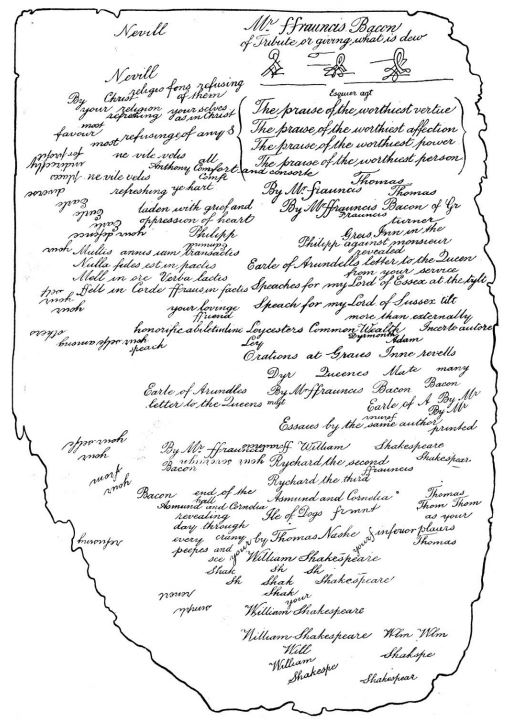 Nevill
Mr. ffrauncis Bacon
of Tribute or giving what is dew
Nevill
religio fons refusing
By Christ of them
Esquier
your religion yourselves
refreshing as in Christ
The praise of the worthiest vertue
most
favour
The praise of the worthiest affection
most refusinge of any
The praise of the worthiest power
ne vile velis
all
The praise of the worthiest person
Anthony Comfort and consorte
places ne vile velis
Thomas
By Mr frauncis Thomas
diverse refreshing ye hart
Earle
By Mr ffrauncis Bacon of Gr
laden with grief and
oppression of heart
frauncis
turner
Grais Inn in the
your defence Philipp
Philipp against monsieur
your Multis annis iam transactis
revealed
Nulla fides est in pactis
Earle of Arundells letter to the Queen
Mell in ore Verba lactis
from your service
ffell in Corde ffraus in factis
Speaches for my Lord of Essex at the tylt
your
your lovinge
ffriend
Speach for my Lord of Sussex tilt
more than externally
others
honorificabiletudine
Leycesters Common Wealth
Incerto autore
Dyrmonth
Adam
speach
Ley
Orations at Graies Inne revells
Dyr Queenes Mate many
Earle of Arundles
By Mr ffrauncis Bacon Bacon
letter to the Queens
Earle of A By Mr
By Mr
Essaies by the same author printed
your selfe
By Mr ffrauncis William Shakespeare
your
Bacon
Rychard the second
Shakespear
ffrauncis
from
Rychard the third
your
Bacon end of the
ball
Asmund and Cornelia
Thomas
Asmund and Cornelia
revealing
Ile of Dogs frmnt
Thom Thom
as your
day through
every crany by Thomas Nashe inferior plaiers
peepes and
Thomas
see your
your
William Shakespeare
Shak Sh Sh
Sh Shak Shakespeare
never
Shak
your
William Shakespeare
William Shakespeare Wlm Wlm
Will
Shakspe
William
Shakespe
Shakespear